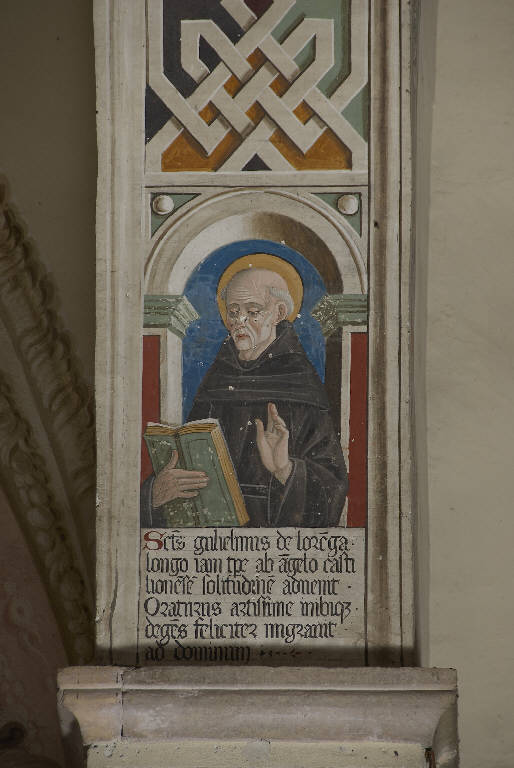 Sct̄s gulielmus de lorēga·
longo iam tp̄e ab āgelo casti
lionēsē solitudinē aduenit·
Oraturus artissime inibiqꝫ·
degēs feliciter migrauit·
ad dominum